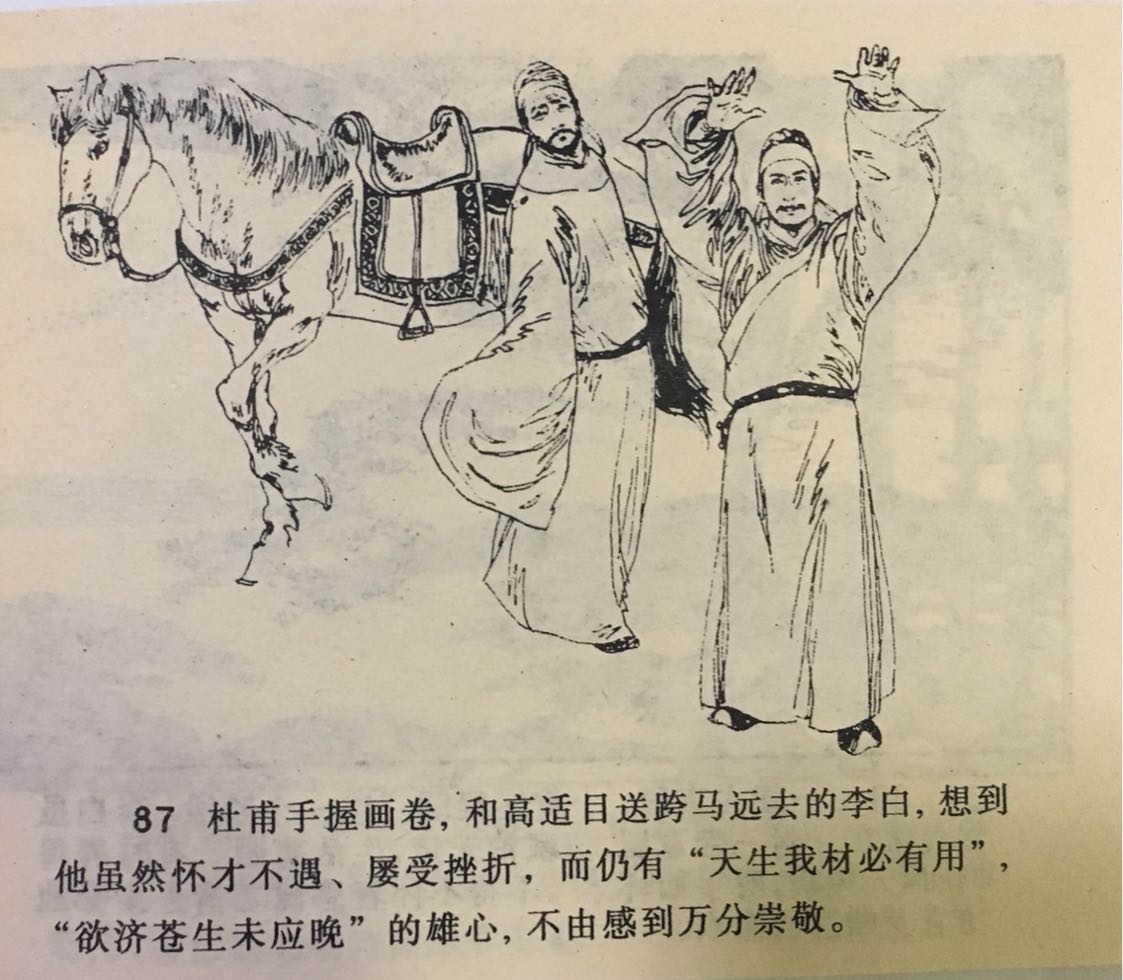 87 杜甫手握画卷，和高适目送跨马远去的李白，想到
他虽然怀才不遇、屡受挫折，而仍有“天生我材必有用”，
“欲济苍生未应晚”的雄心，不由感到万分崇敬。